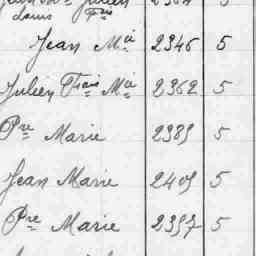 Louis Frçois
Jean Mie 2346 5
Julien Frçois Mie 2362 5
Pre Marie 2389 5
Jean Marie 2409 5
Pre Marie 2397 5